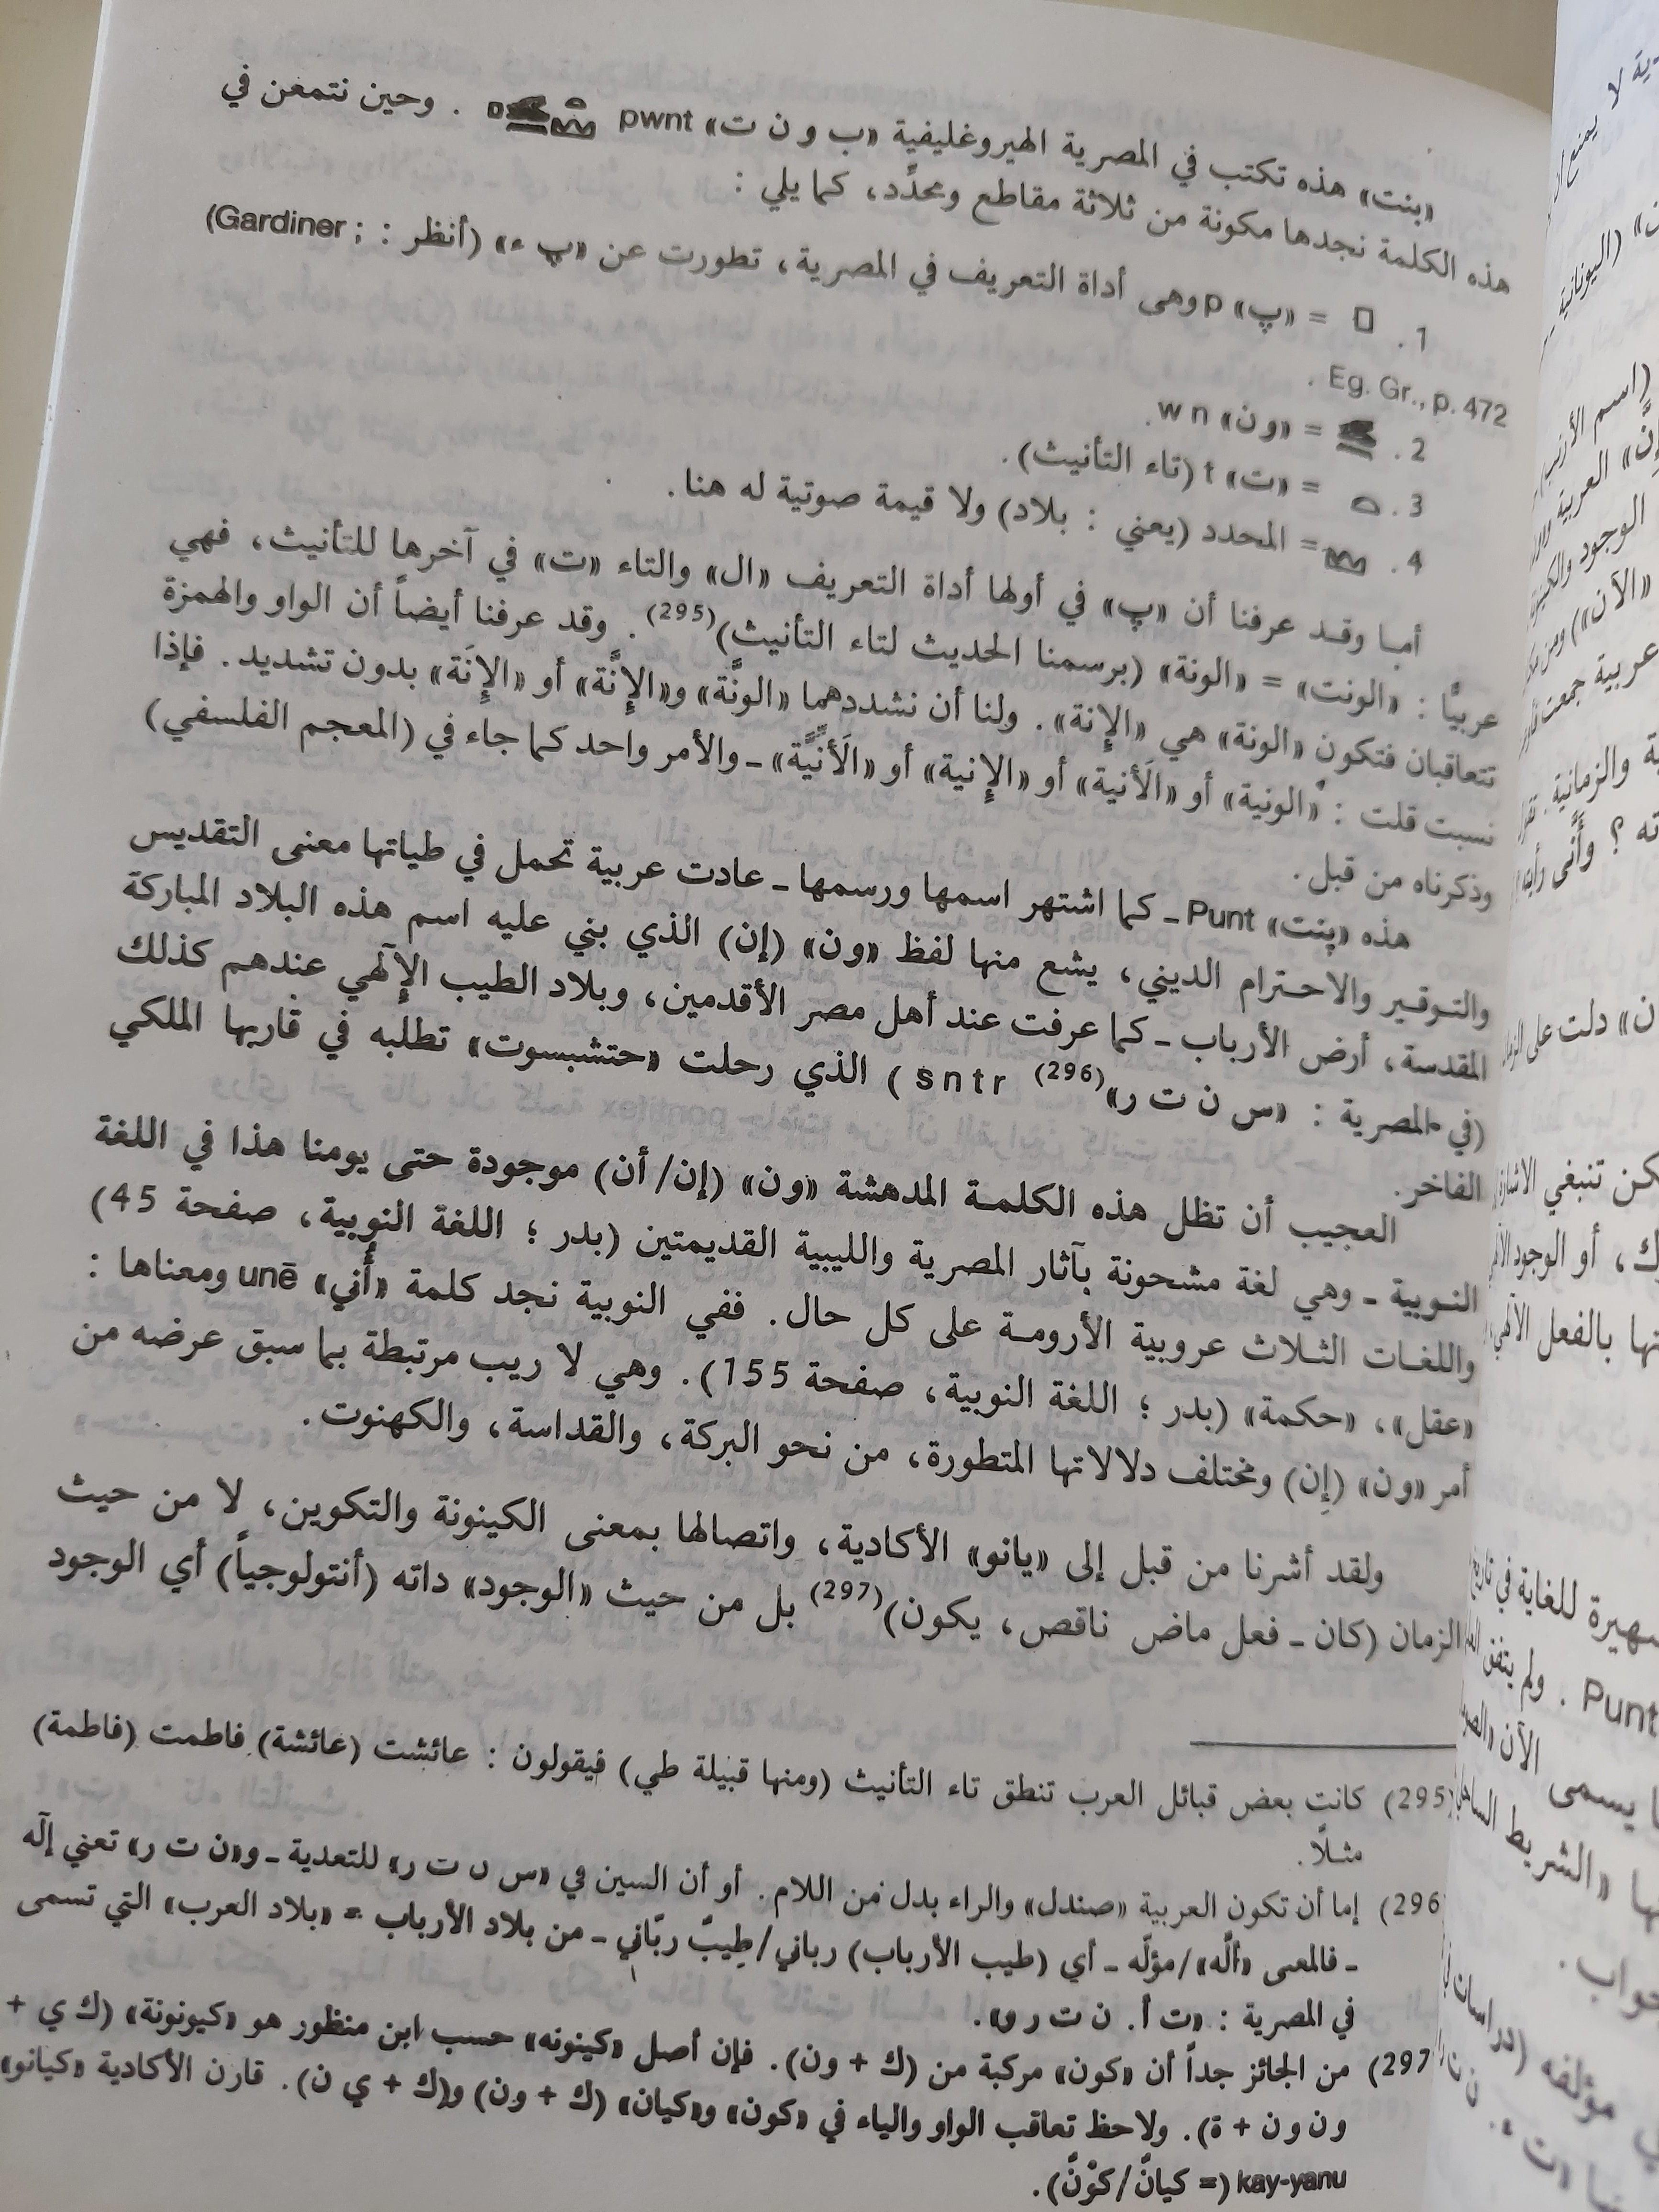 «بنت» هذه تكتب في المصرية الهيروغليفية «ب و ن ت» pwnt . وحين نتمعن في
هذه الكلمة نجدها مكونة من ثلاثة مقاطع ومحدِّد، كما يلي :
1 . = «پ» p وهى أداة التعريف في المصرية، تطورت عن «پ ء» (أنظر : Gardiner ;
Eg. Gr., p. 472 .
2 . = «ون» w n.
3 . = «ت» t (تاء التأنيث).
4 . = المحدد (يعني : بلاد) ولا قيمة صوتية له هنا.
أما وقد عرفنا أن «پ» في أولها أداة التعريف «ال» والتاء «ت» في آخرها للتأنيث، فهي
عربيًّا : «الونت» = «الونة» (برسمنا الحديث لتاء التأنيث)(295) . وقد عرفنا أيضاً أن الواو والهمزة
تتعاقبان فتكون «الونة» هي «الإنة» . ولنا أن نشددهما «الونَّة» و«الإنَّة» أو «الإنَة» بدون تشديد . فإذا
نسبت قلت : «الونية» أو «الَأنية» أو «الإنية» أو «الَأنِّيَّة» ـ والأمر واحد كما جاء في (المعجم الفلسفي)
وذكرناه من قبل .
هذه «پنت» Punt ـ كما اشتهر اسمها ورسمها ـ عادت عربية تحمل في طياتها معنى التقديس
والتوقير والاحترام الديني، يشع منها لفظ «ون» (إن) الذي بني عليه اسم هذه البلاد المباركة
المقدسة، أرض الأرباب ـ كما عرفت عند أهل مصر الأقدمين، وبلاد الطيب الإلهي عندهم كذلك
(في المصرية : «س ن ت ر»(296) s n t r ) الذي رحلت «حتشبسوت» تطلبه في قاربها الملكي
الفاخر.
العجيب أن تظل هذه الكلمة المدهشة «ون» (إن/ أن) موجودة حتى يومنا هذا في اللغة
النوبية ـ وهي لغة مشحونة بآثار المصرية والليبية القديمتين (بدر ؛ اللغة النوبية، صفحة 45)
واللغات الثلاث عروبية الأرومة على كل حال . ففي النوبية نجد كلمة «أُني» unē ومعناها :
«عقل»، «حكمة» (بدر ؛ اللغة النوبية، صفحة 155) . وهي لا ريب مرتبطة بما سبق عرضه من
أمر «ون» (إن) ومختلف دلالاتها المتطورة، من نحو البركة، والقداسة، والكهنوت .
ولقد أشرنا من قبل إلى «يانو» الأكادية، واتصالها بمعنى الكينونة والتكوين، لا من حيث
الزمان (كان ـ فعل ماض ناقص، يكون)(297) بل من حيث «الوجود» داته (أنتولوجياً) أي الوجود
(295) كانت بعض قبائل العرب تنطق تاء التأنيث (ومنها قبيلة طي) فيقولون : عائشت (عائشة) فاطمت (فاطمة)
مثلًا .
(296 إما أن تكون العربية «صندل» والراء بدل من اللام. أو أن السين في «س ن ت ر» للتعدية ـ و«ن ت ر» تعني إلٓه
ـ فالمعى «ألَّه» /مؤلّه ـ أي (طيب الأرباب) رباني/طِيبٌ ربّاني ـ من بلاد الأرباب = «بلاد العرب» التي تسمى
في المصرية : «ت أ. ن ت ر و».
(297 من الجائز جداً أن «كون» مركبة من (ك + ون). فإن أصل «كينونه» حسب ابن منظور هو «كيونونة» (ك ي +
ون ون + ة). ولاحظ تعاقب الواو والياء في «كون» و«كيان» (ك + ون) و(ك + ي ن). قارن الأكادية «كيانو»
kay-yanu (= كيانٌ/كوْنٌ).